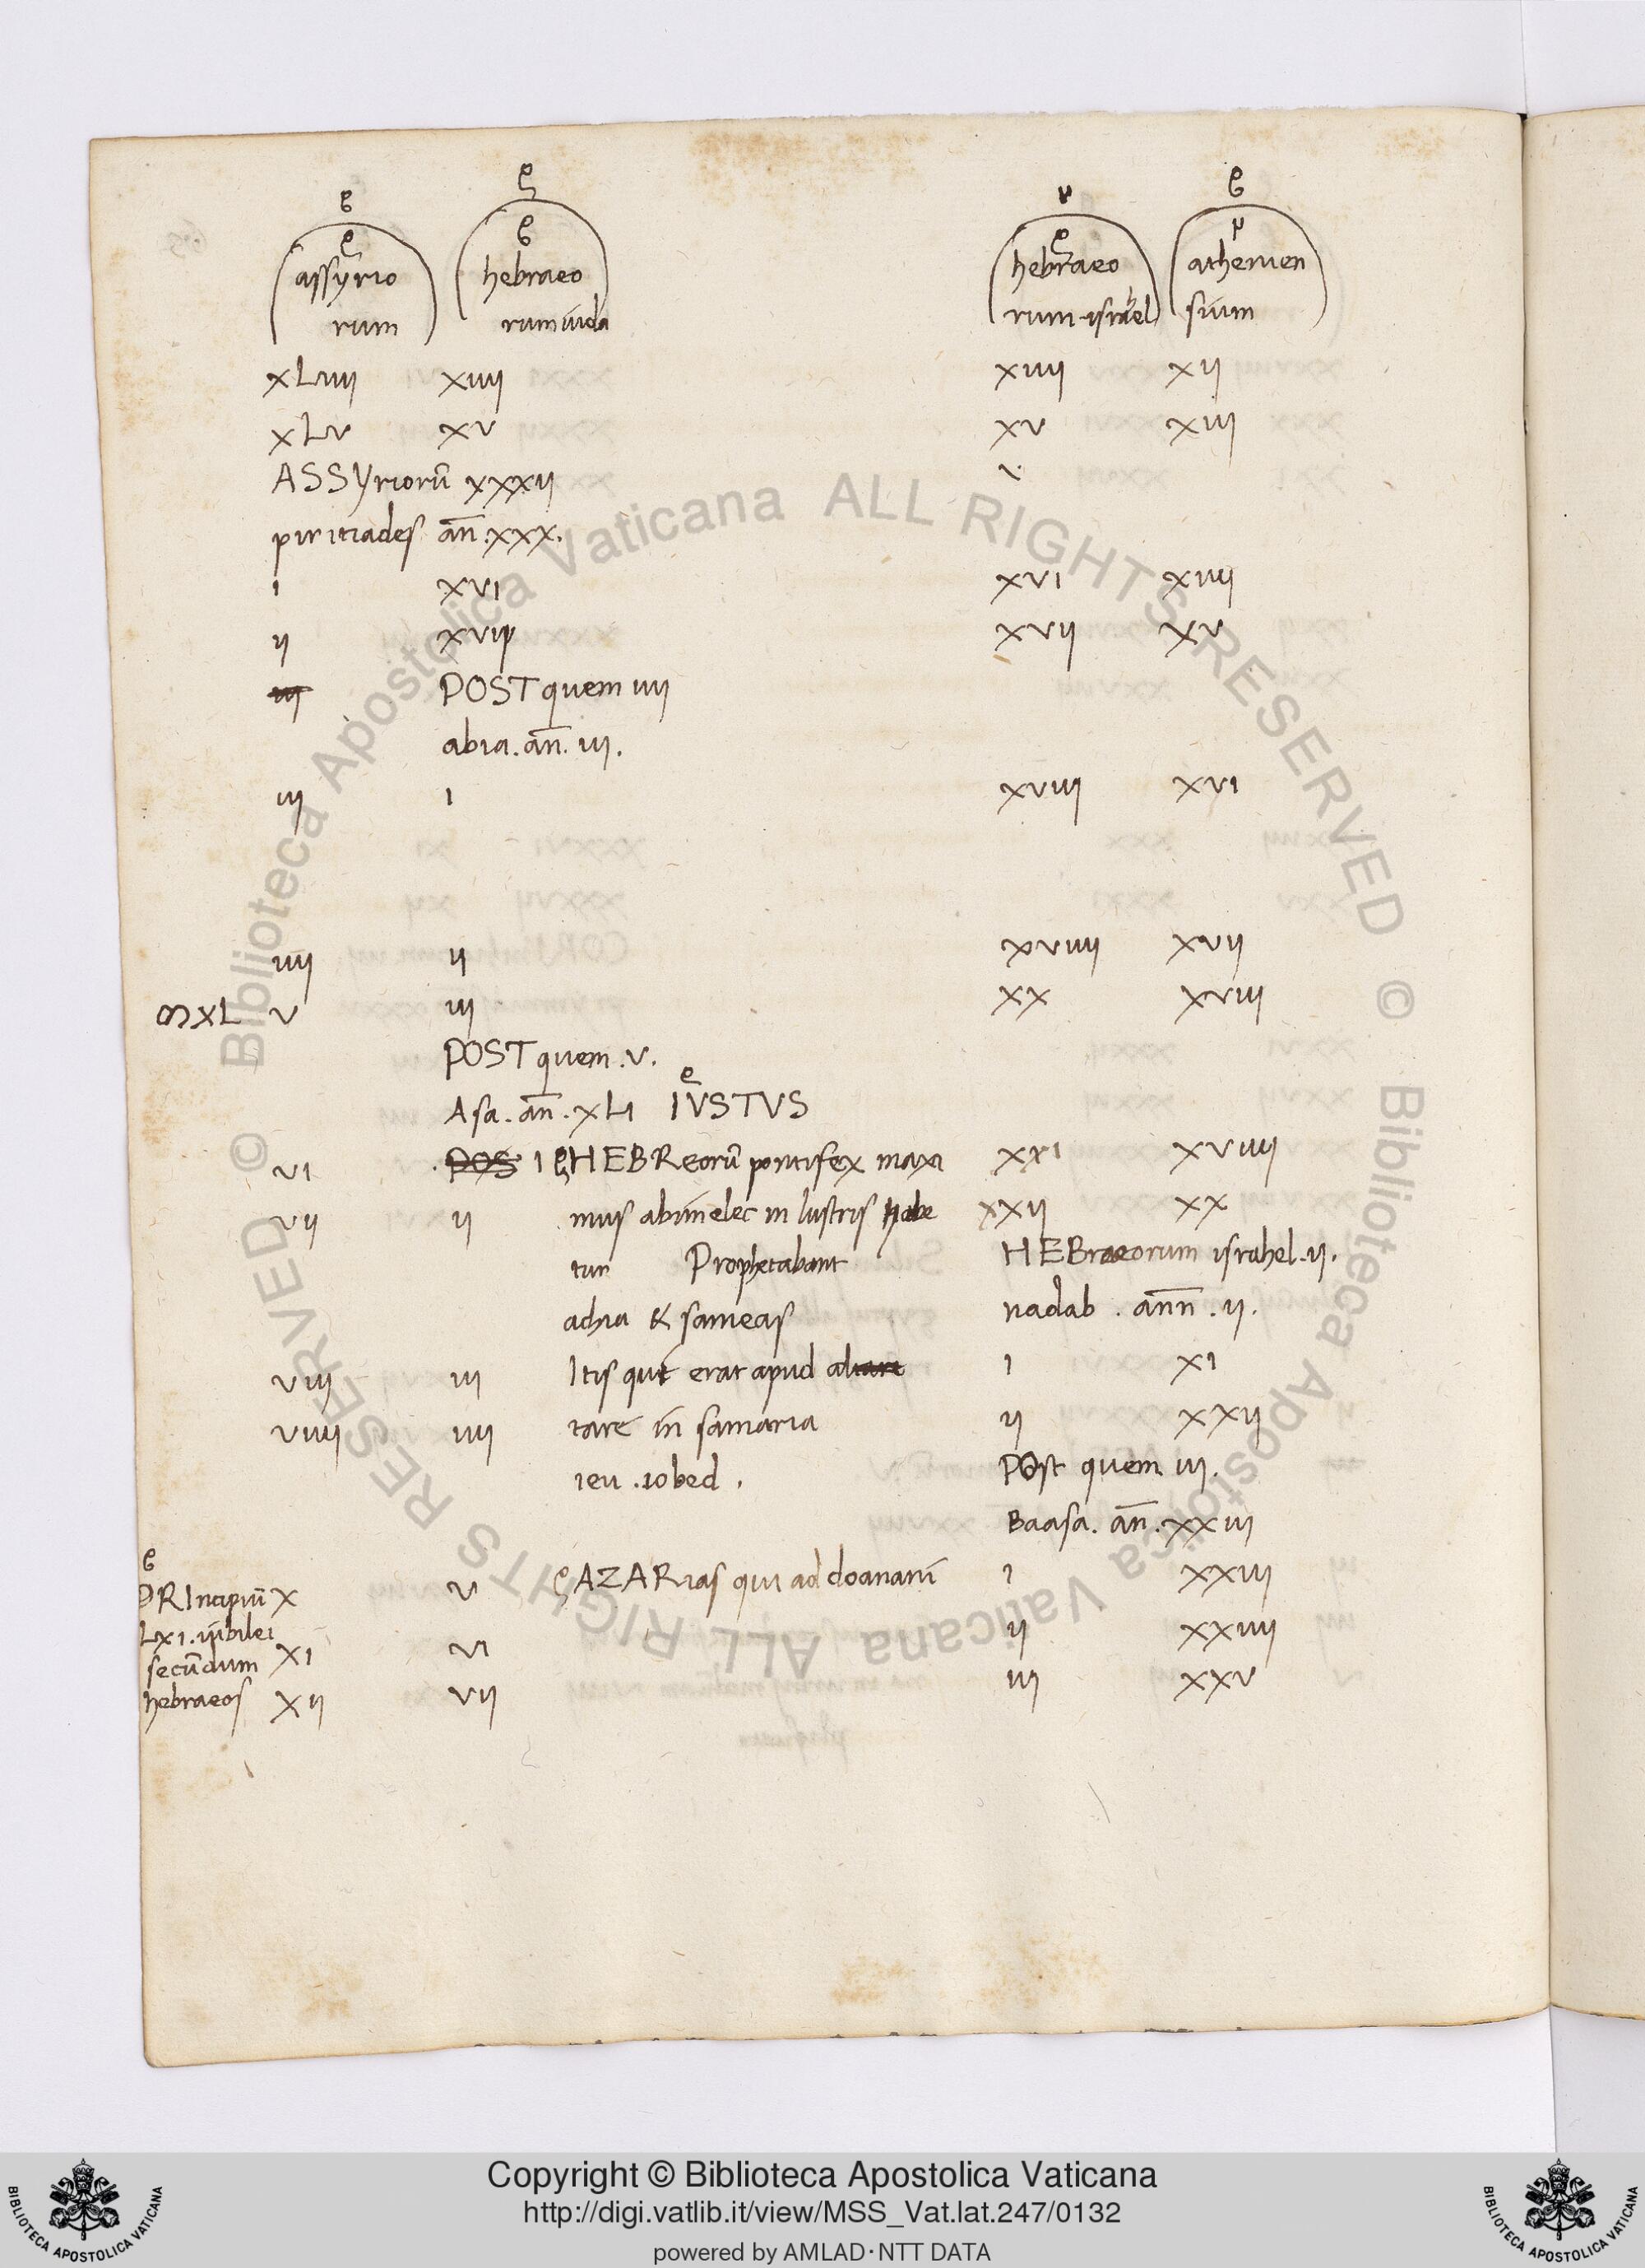 assyrio hebraeo hebraeo athenien
rum rum iuda rum israel sium
xLiiii xiiii xiiii xii
xLv xv xv xiii
ASSyriorū xxxii v.
piritiades añ. xxx.
i xvi xvi xiiii
ii xvii xvii xv
iii POST quem iiii
abia. añ. iii.
iii i xviii xvi
iiii ii xviiii xvii
xL v iii xx xviii
POST quem .v.
Asa. añ. xLi IVSTVS
vi POS I HEBReorū pontifex maxi xxi xviiii
vii ii mus abimelec in lustris habe xxii xx
tur Prophetabant HEBraeorum israhel .ii.
achia & sameas nadab . annn . ii.
viii iii Itis qui erat apud altare i xi
viiii iiii tare in samaria ii xxii
ieu . iobed . POst quem iii.
Baasa. añ. xxiii
PRIncipiū x v AZARias qui ad doananī i xxiii
Lxi. iubilei ii xxiiii
secūdum xi vi iii xxv
hebraeos xii vii
© Biblioteca Apostolica Vaticana ALL RIGHTS RESERVED © Biblioteca Apostolica Vaticana ALL RIGHTS RESERVED
Copyright © Biblioteca Apostolica Vaticana
http://digi.vatlib.it/view/MSS_Vat.lat.247/0132
powered by AMLAD·NTT DATA
BIBLIOTECA APOSTOLICA VATICANA
BIBLIOTECA APOSTOLICA VATICANA